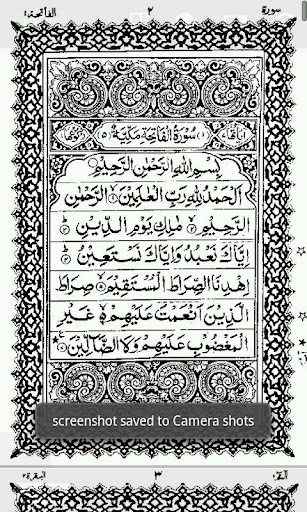 سورة ٢ الفاتحة ١
اٰیَاتُهَا (١) سُوْرَةُ الْفَاتِحَةِ مَكِّيَّةٌ (٥)
بِسْمِ اللّٰهِ الرَّحْمٰنِ الرَّحِيْمِ
اَلْحَمْدُ لِلّٰهِ رَبِّ الْعٰلَمِيْنَ ۙ١ الرَّحْمٰنِ
الرَّحِيْمِ ۙ٢ مٰلِكِ يَوْمِ الدِّيْنِ ؕ٣
اِيَّاكَ نَعْبُدُ وَاِيَّاكَ نَسْتَعِيْنُ ؕ٤
اِهْدِنَا الصِّرَاطَ الْمُسْتَقِيْمَ ۙ٥ صِرَاطَ
الَّذِيْنَ اَنْعَمْتَ عَلَيْهِمْ ۙ٦ غَيْرِ
الْمَغْضُوْبِ عَلَيْهِمْ وَلَا الضَّآلِّيْنَ ۧ٧
screenshot saved to Camera shots
٣ البقرة ٢